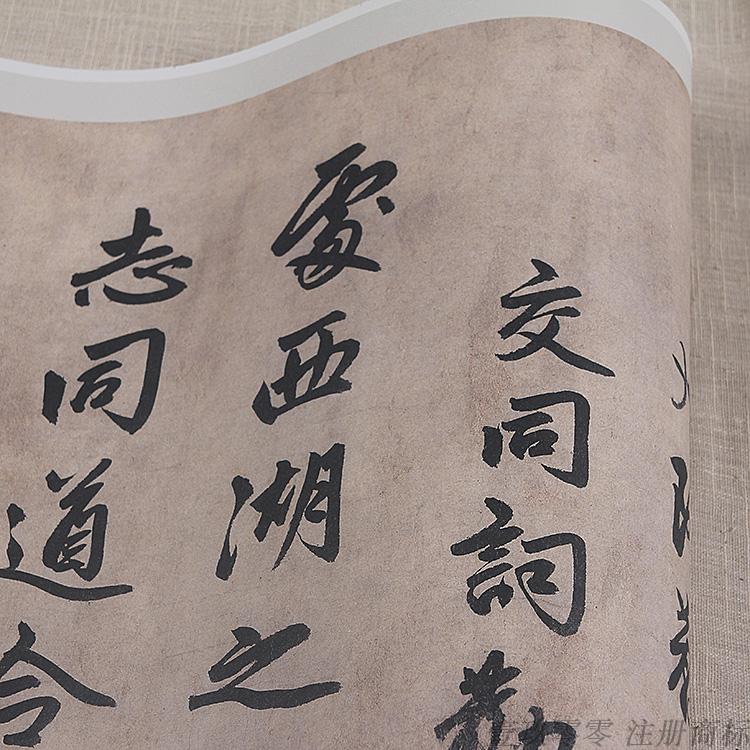 交同詞
處西湖之
志同道合
零零 注册商标